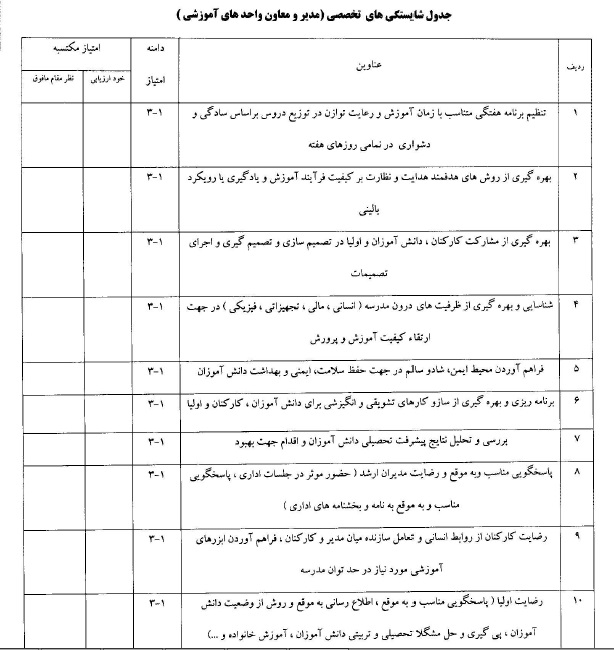 جدول شایستگی های تخصصی ( مدیر و معاون واحد های آموزشی )
ردیف
عناوین
دامنه
امتیاز
امتیاز مکتسبه
خود ارزیابی
نظر مقام مافوق
۱
تنظیم برنامه هفتگی متناسب با زمان آموزش و رعایت توازن در توزیع دروس براساس سادگی و
دشواری در تمامی روزهای هفته
۳-۱
۲
بهره گیری از روش های هدفمند هدایت و نظارت بر کیفیت فرآیند آموزش و یادگیری با رویکرد
بالینی
۳-۱
۳
بهره گیری از مشارکت کارکنان ، دانش آموزان و اولیا در تصمیم سازی و تصمیم گیری و اجرای
تصمیمات
۳-۱
۴
شناسایی و بهره گیری از ظرفیت های درون مدرسه ( انسانی ، مالی ، تجهیزاتی ، فیزیکی ) در جهت
ارتقاء کیفیت آموزش و پرورش
۳-۱
۵
فراهم آوردن محیط ایمن، شادو سالم در جهت حفظ سلامت، ایمنی و بهداشت دانش آموزان
۳-۱
۶
برنامه ریزی و بهره گیری از سازو کارهای تشویقی و انگیزشی برای دانش آموزان ، کارکنان و اولیا
۳-۱
۷
بررسی و تحلیل نتایج پیشرفت تحصیلی دانش آموزان و اقدام جهت بهبود
۳-۱
۸
پاسخگویی مناسب وبه موقع و رضایت مدیران ارشد ( حضور موثر در جلسات اداری ، پاسخگویی
مناسب و به موقع به نامه و بخشنامه های اداری )
۳-۱
۹
رضایت کارکنان از روابط انسانی و تعامل سازنده میان مدیر و کارکنان ، فراهم آوردن ابزرهای
آموزشی مورد نیاز در حد توان مدرسه
۳-۱
۱۰
رضایت اولیا ( پاسخگویی مناسب و به موقع ، اطلاع رسانی به موقع و روش از وضعیت دانش
آموزان ، پی گیری و حل مشگلا تحصیلی و تربیتی دانش آموزان ، آموزش خانواده و ...)
۳-۱